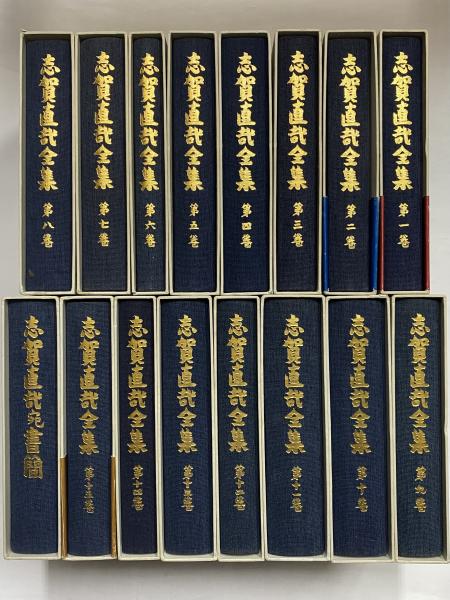 志賀直哉全集 第一巻
志賀直哉全集 第二巻
志賀直哉全集 第三巻
志賀直哉全集 第四巻
志賀直哉全集 第五巻
志賀直哉全集 第六巻
志賀直哉全集 第七巻
志賀直哉全集 第八巻
志賀直哉全集 第九巻
志賀直哉全集 第十巻
志賀直哉全集 第十一巻
志賀直哉全集 第十二巻
志賀直哉全集 第十三巻
志賀直哉全集 第十四巻
志賀直哉全集 第十五巻
志賀直哉宛書簡